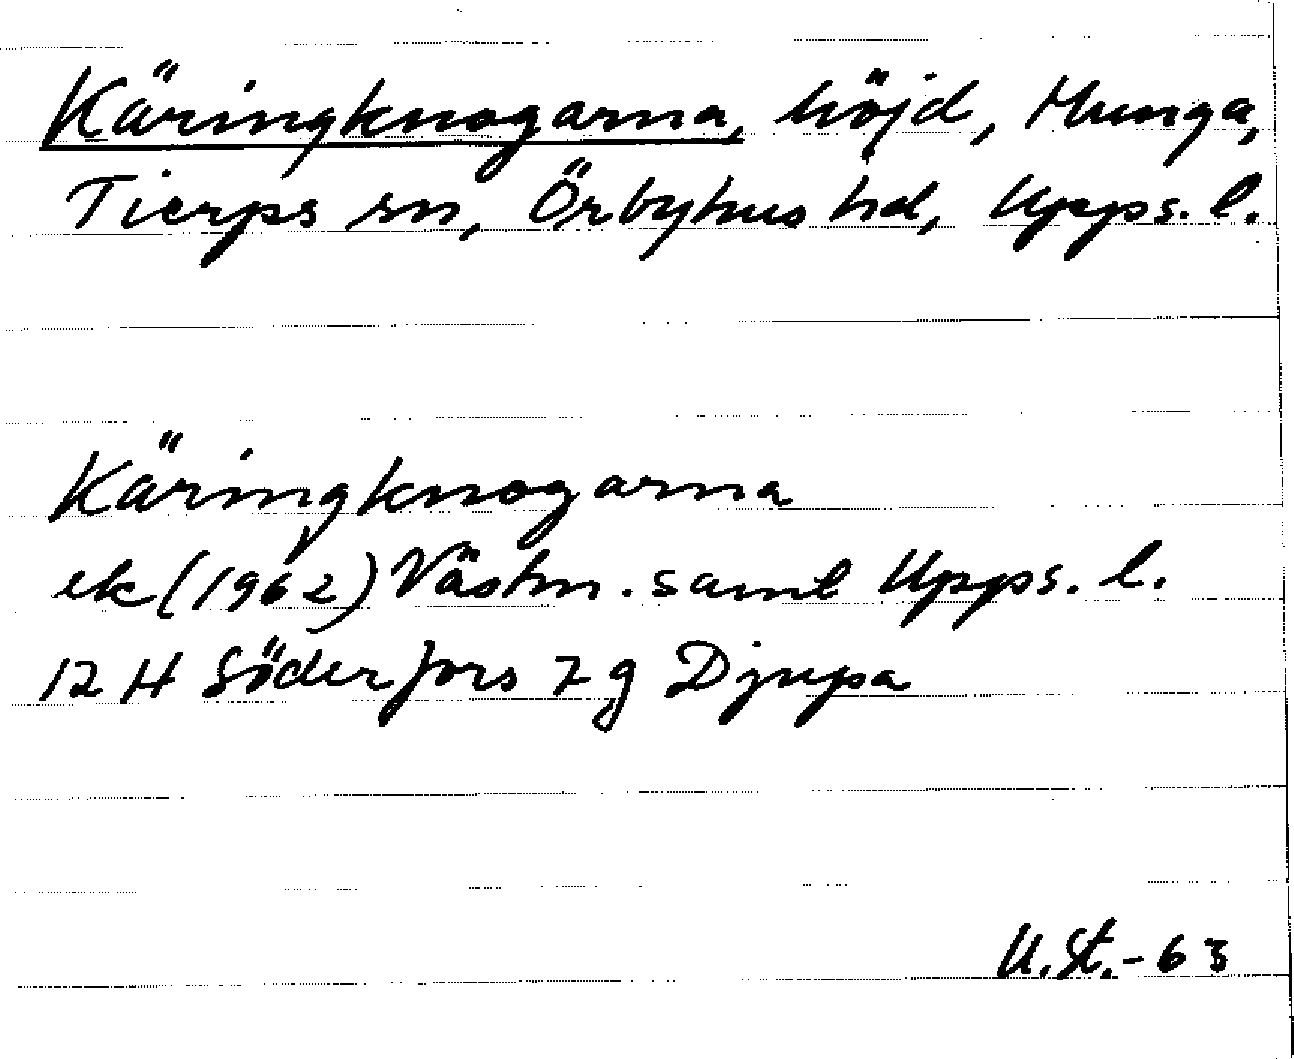 Käringknogarna, höjd, Munga,
Tierps sn, Örbyhus hd, Upps. l.
Käringknogarna
ek (1962) Västm. saml Upps. l.
12 H Söderfors 7 g Djupa
U.St.-63